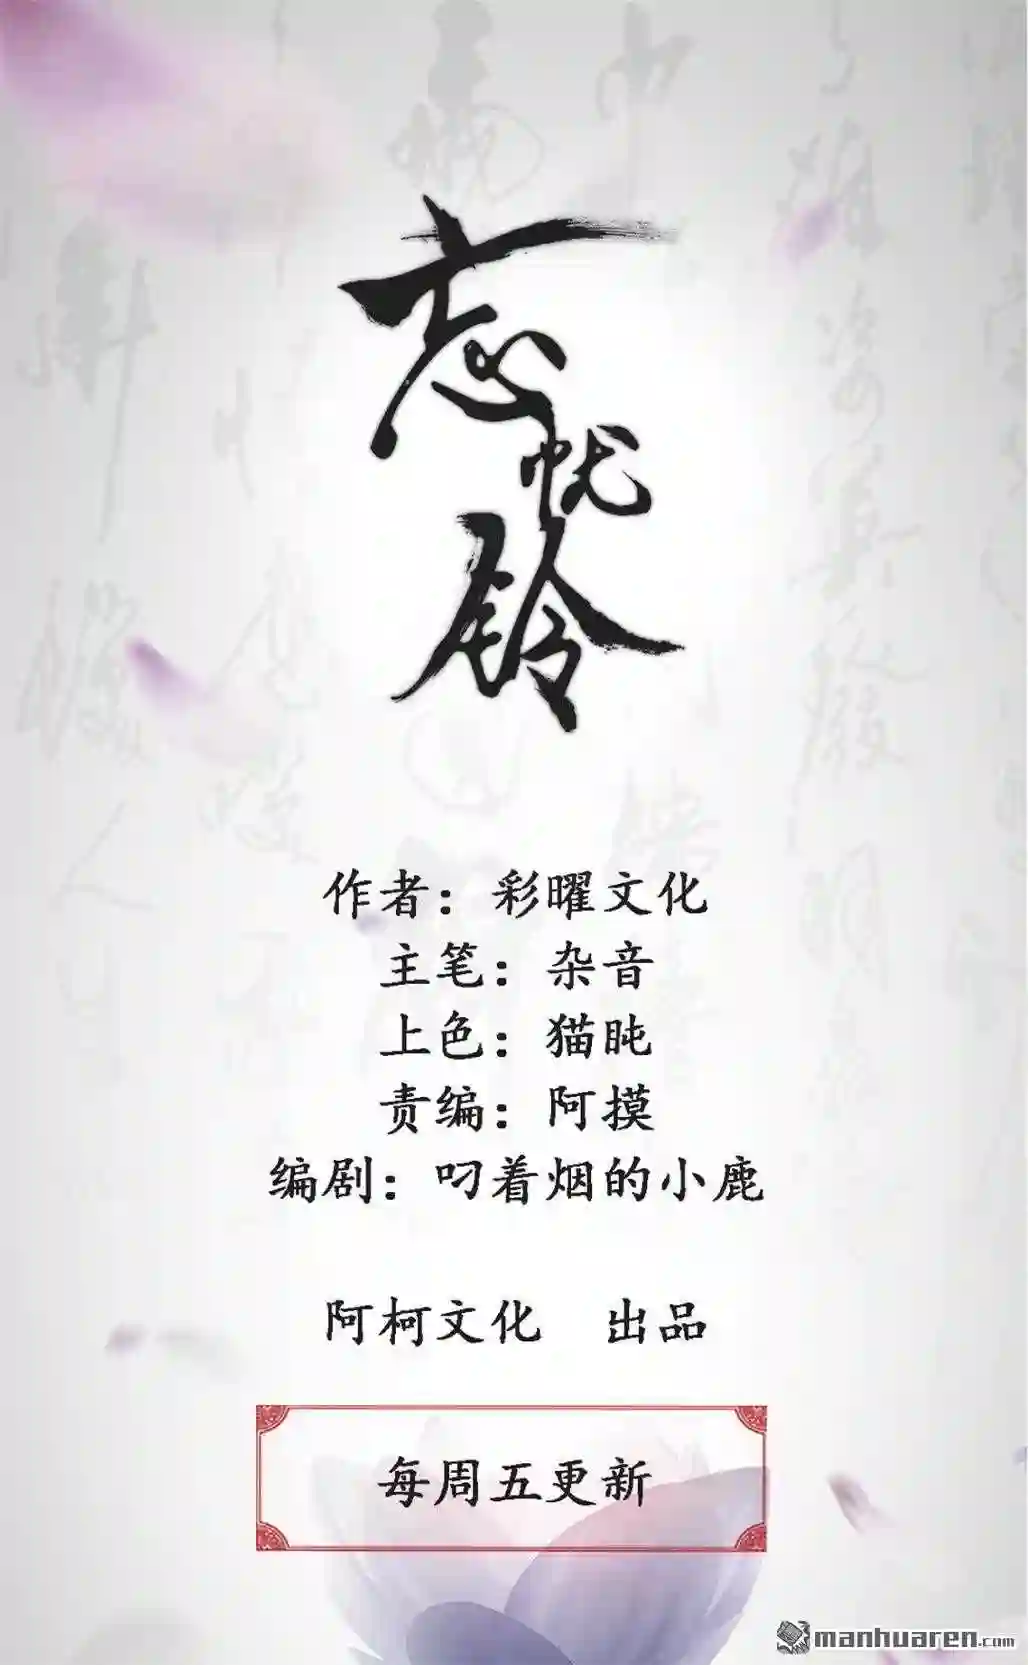 忘忧铃
作者：彩曜文化
主笔：杂音
上色：猫盹
责编：阿摸
编剧：叼着烟的小鹿
阿柯文化 出品
每周五更新
manhuaren.com